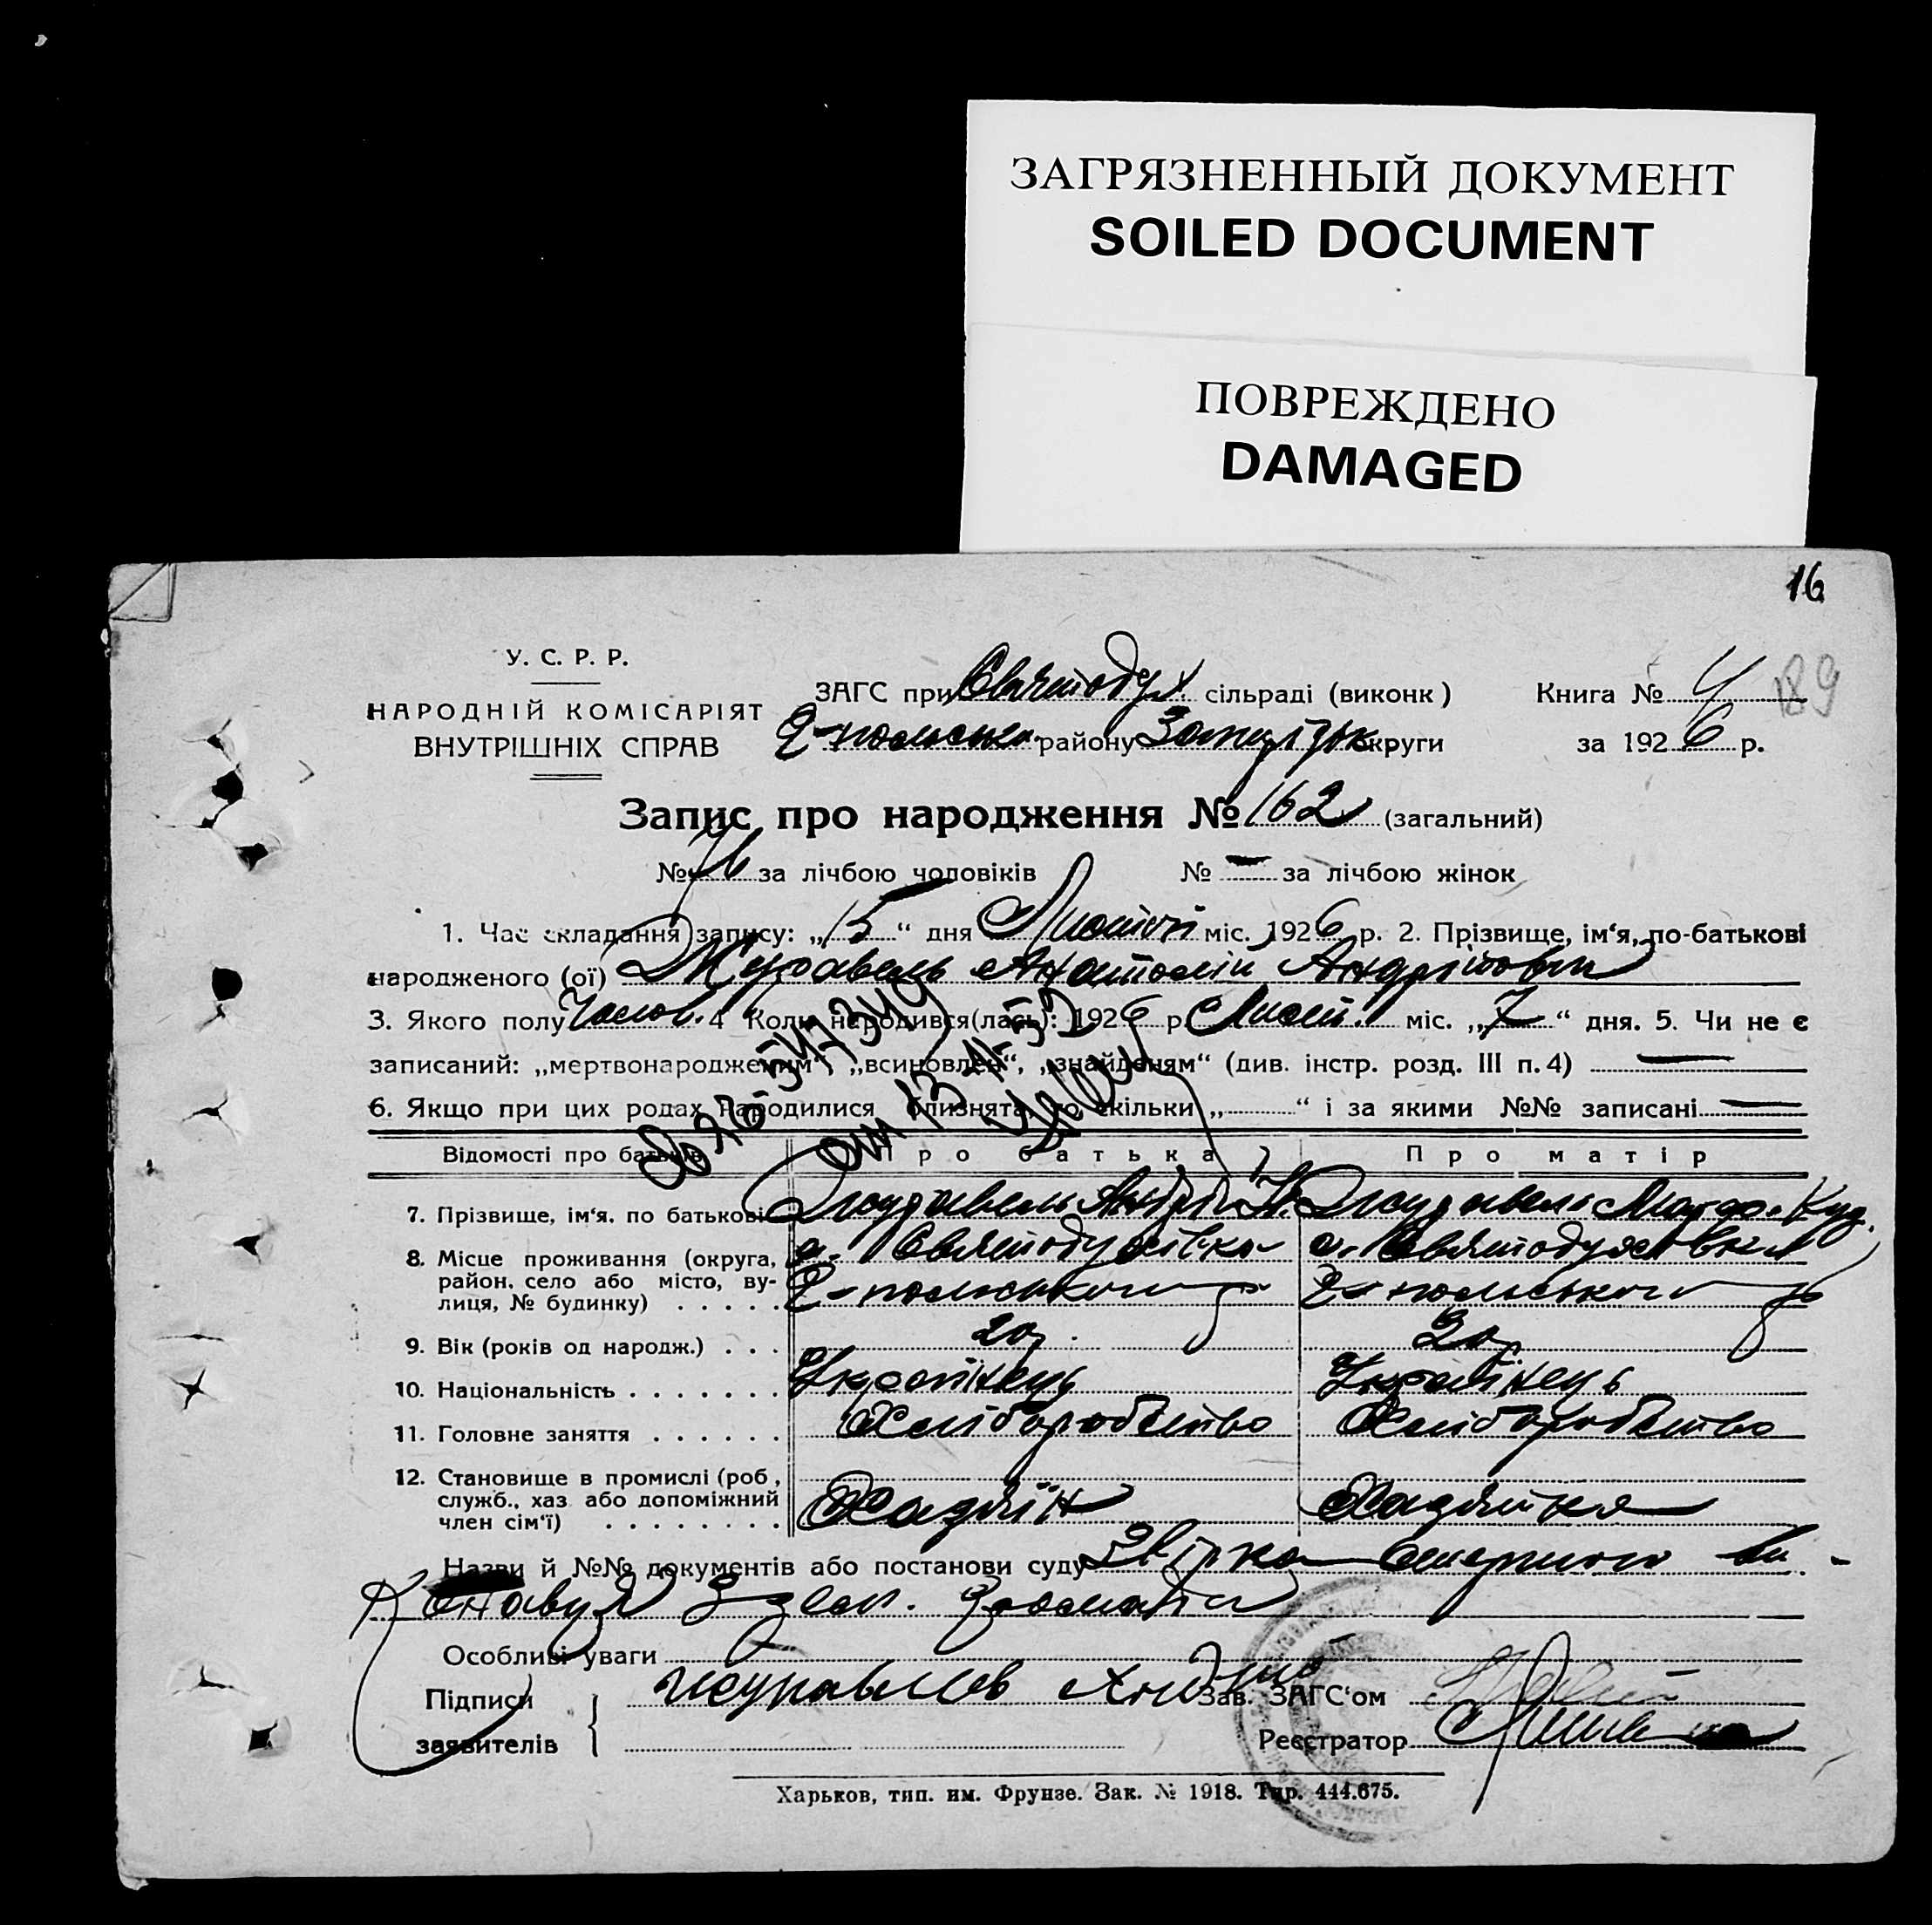 ЗАГРЯЗНЕННЫЙ ДОКУМЕНТ
SOILED DOCUMENT
ПОВРЕЖДЕНО
DAMAGED
16
189
У. С. Р. Р.
НАРОДНІЙ КОМІСАРІЯТ
ВНУТРІШНІХ СПРАВ
ЗАГС при Святодух. сільраді (виконк)
района округи
Книга № 4
за 1926 р.
Запис про народження № 162 (загальний)
№ 76 за лічбою чоловіків № — за лічбою жінок
1. Час складання запису: „15“ дня Лютого міс. 1926 р. 2. Прізвище, ім‘я, по-батькові
народженого (ої) Журавель Анатолій Андрійович
3. Якого полу Чолов. 4 Коли народився(лась): 1926 р. Лют. міс. „7“ дня. 5. Чи не є
записаний: „мертвонародженим“, „всиновлен“, „знайденям“ (див. інстр. розд. III п. 4) —
6. Якщо при цих родах народилися близнята, то скільки „ “ і за якими №№ записані —
от 13
Відомості про батьків Про батька Про матір
7. Прізвище, ім‘я. по батькові Журавель Андрій К. Журавель Марфа Куз.
8. Місце проживання (округа, с. Святодухівка с. Святодухівка
район, село або місто, ву-
лиця, № будинку) Г-польського р Г-польського р
9. Вік (років од народж.) 20 20
10. Національність Українець Українець
11. Головне заняття Хліборобство Хліборобство
12. Становище в промислі (роб,
служб., хаз або допоміжний
член сім‘ї) Хазяїн Хазяйка
Назви й №№ документів або постанови суду
Особливі уваги
Підписи
заявителів
Зав. ЗАГС‘ом
Реєстратор
Харьков, тип. им. Фрунзе. Зак. № 1918. Тир. 444.675.